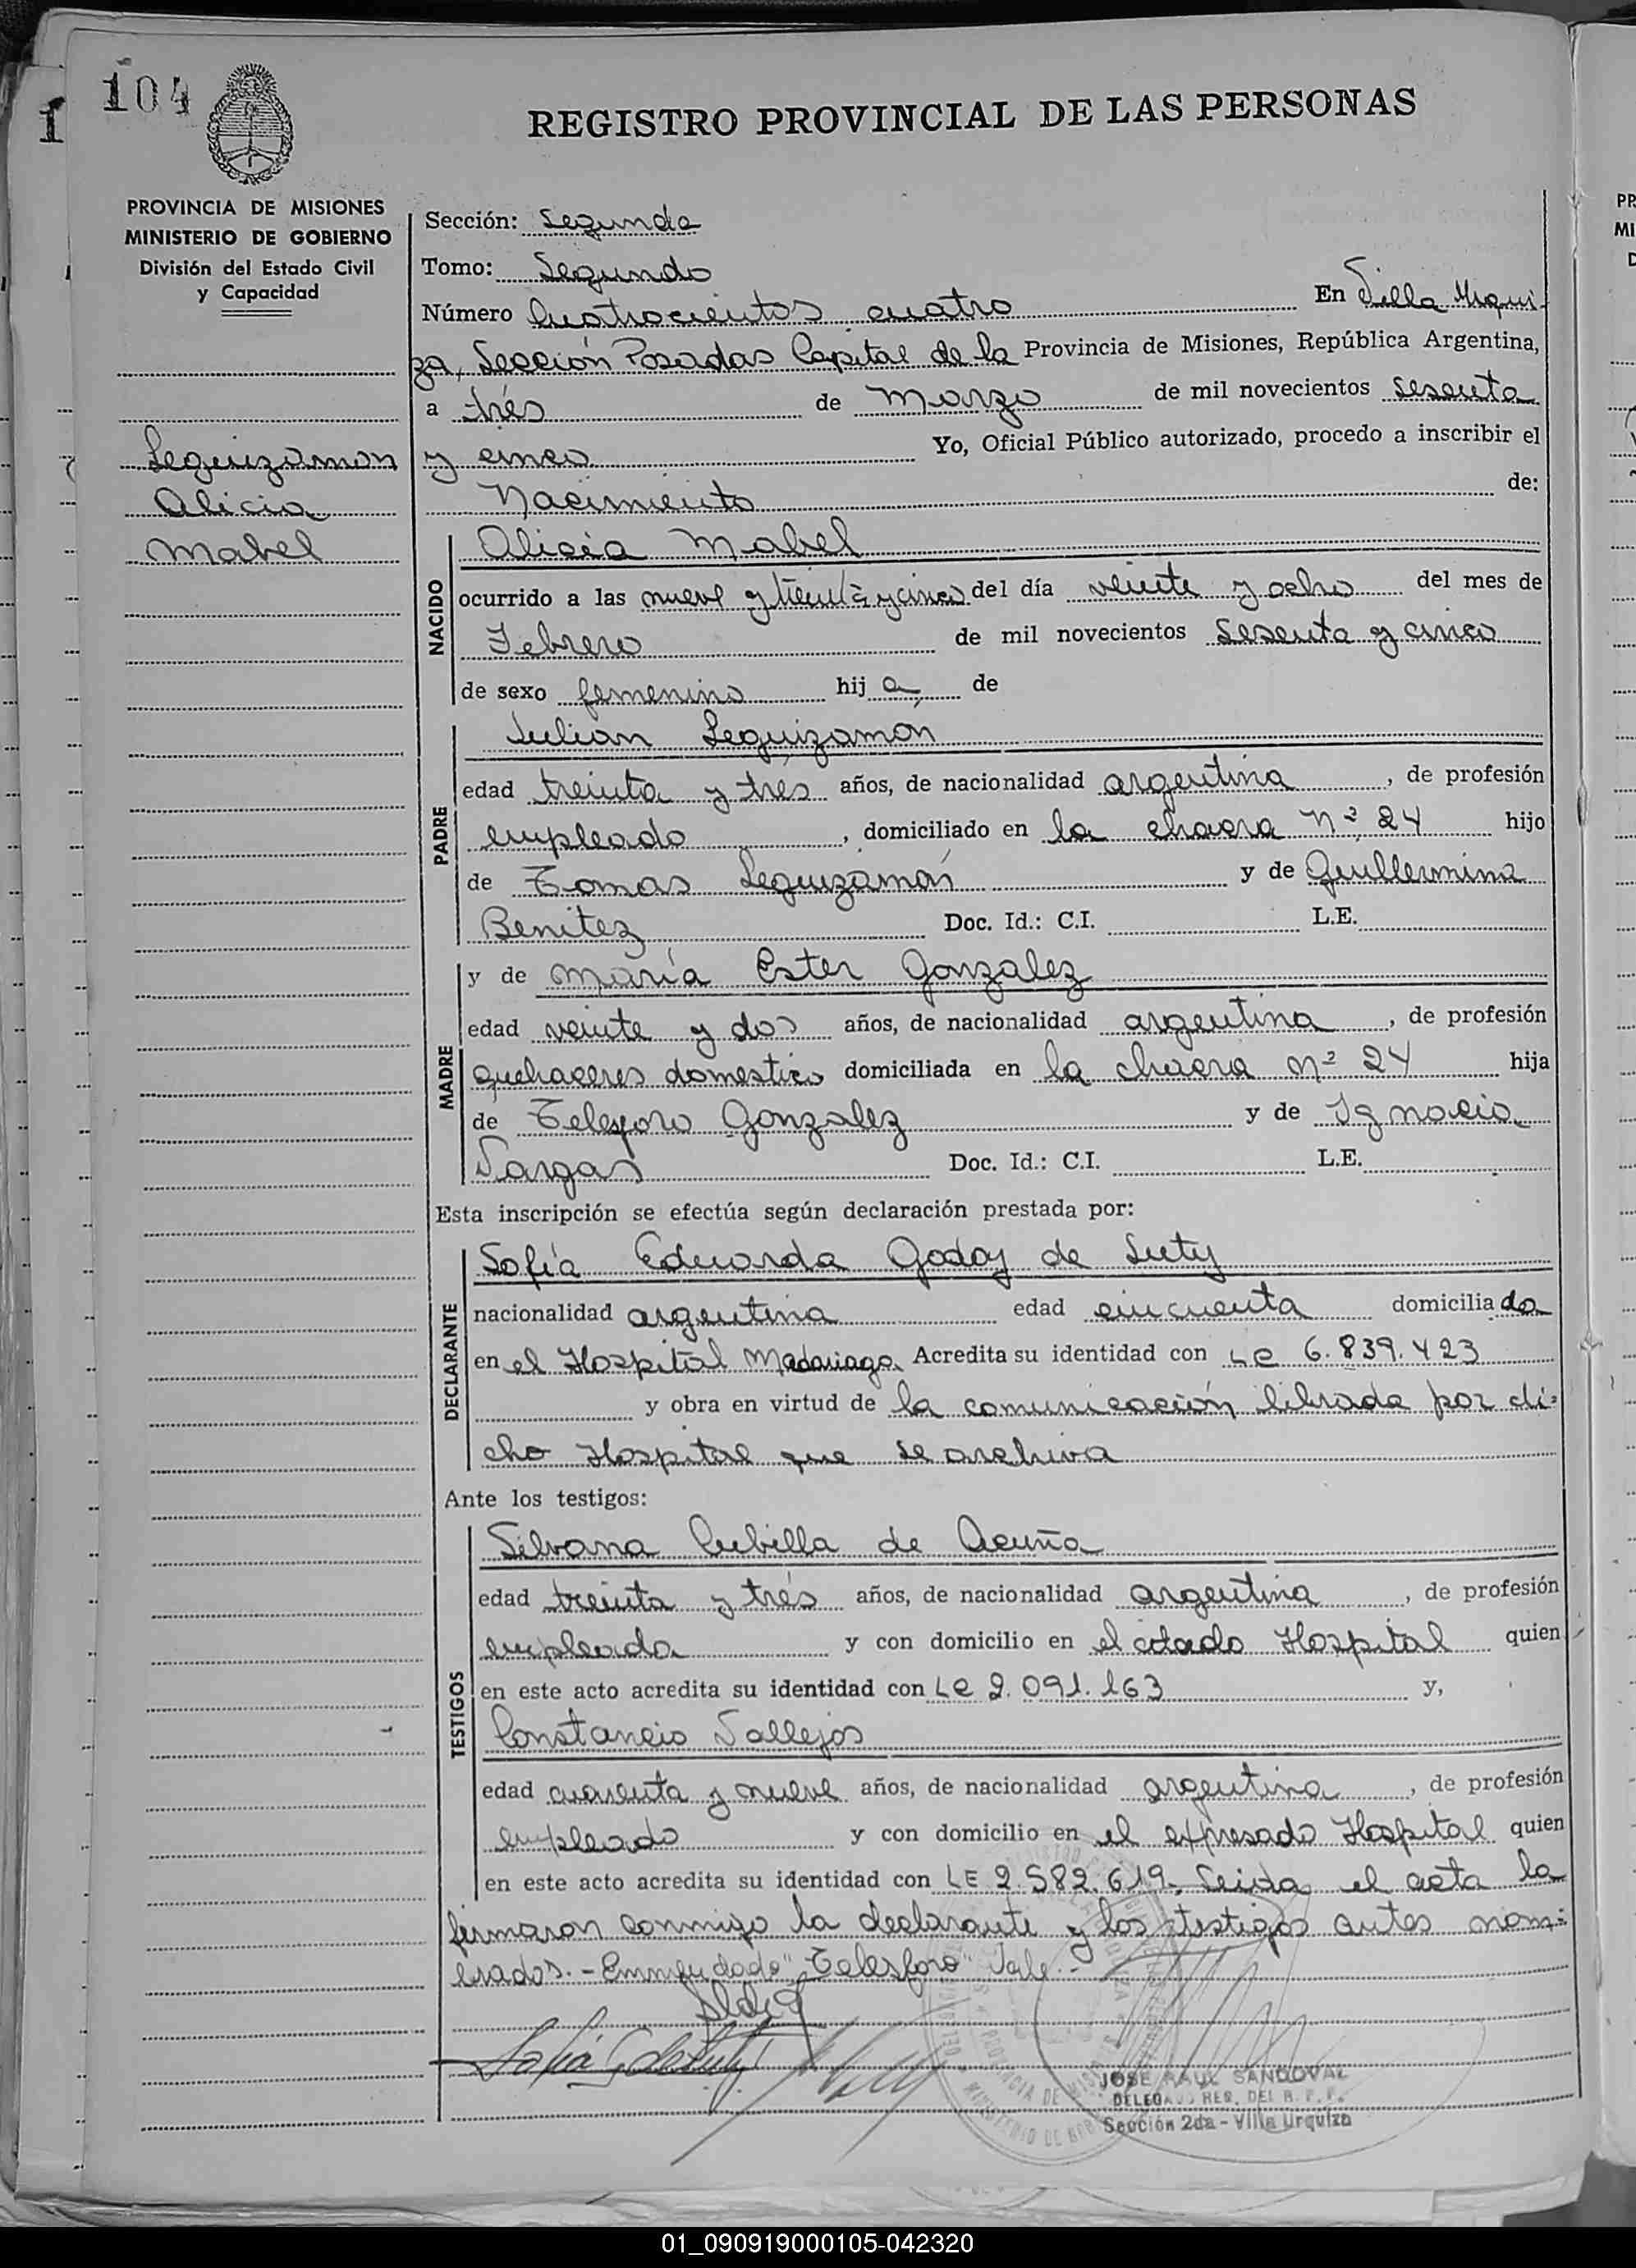 104
REGISTRO PROVINCIAL DE LAS PERSONAS
PROVINCIA DE MISIONES
MINISTERIO DE GOBIERNO
División del Estado Civil
y Capacidad
Leguizamon
Alicia
Mabel
Sección: Segunda
Tomo: Segundo
Número Cuatrocientos cuatro En Villa Urqui-
za, Sección Posadas Capital de la Provincia de Misiones, República Argentina,
a trés de Marzo de mil novecientos Sesenta
y cinco Yo, Oficial Público autorizado, procedo a inscribir el
Nacimiento de:
NACIDO
Alicia Mabel
ocurrido a las nueve y treinta y cinco del día veinte y ocho del mes de
Febrero de mil novecientos Sesenta y cinco
de sexo femenino hij a de
PADRE
Julian Leguizamón
edad treinta y tres años, de nacionalidad argentina, de profesión
empleado, domiciliado en la chacra nº 24 hijo
de Tomas Leguizamón y de Guillermina
Benitez Doc. Id.: C.I. L.E.
MADRE
y de María Ester Gonzalez
edad veinte y dos años, de nacionalidad argentina, de profesión
quehaceres domestico domiciliada en la chacra nº 24 hija
de Telesforo Gonzalez y de Ignacia
Vargas Doc. Id.: C.I. L.E.
Esta inscripción se efectúa según declaración prestada por:
DECLARANTE
Sofía Eduarda Godoy de
nacionalidad argentina edad cincuenta domicilia da
en el Hospital Madariaga Acredita su identidad con LE 6.839.423
y obra en virtud de la comunicación librada por di-
cho Hospital que se archiva
Ante los testigos:
TESTIGOS
Silvana Cubilla de Acuña
edad treinta y trés años, de nacionalidad argentina, de profesión
empleada y con domicilio en el citado Hospital quien
en este acto acredita su identidad con LE 2.091.163 y,
Constancio Vallejos
edad cuarenta y nueve años, de nacionalidad argentina, de profesión
empleado y con domicilio en el expresado Hospital quien
en este acto acredita su identidad con LE 2.582.619. Leida el acta la
firmaron conmigo la declarante y los testigos antes nom-
brados.- Enmendado "Telesforo" Vale.-
JOSE RAUL SANDOVAL
Sección 2da - Villa Urquiza
01_090919000105-042320